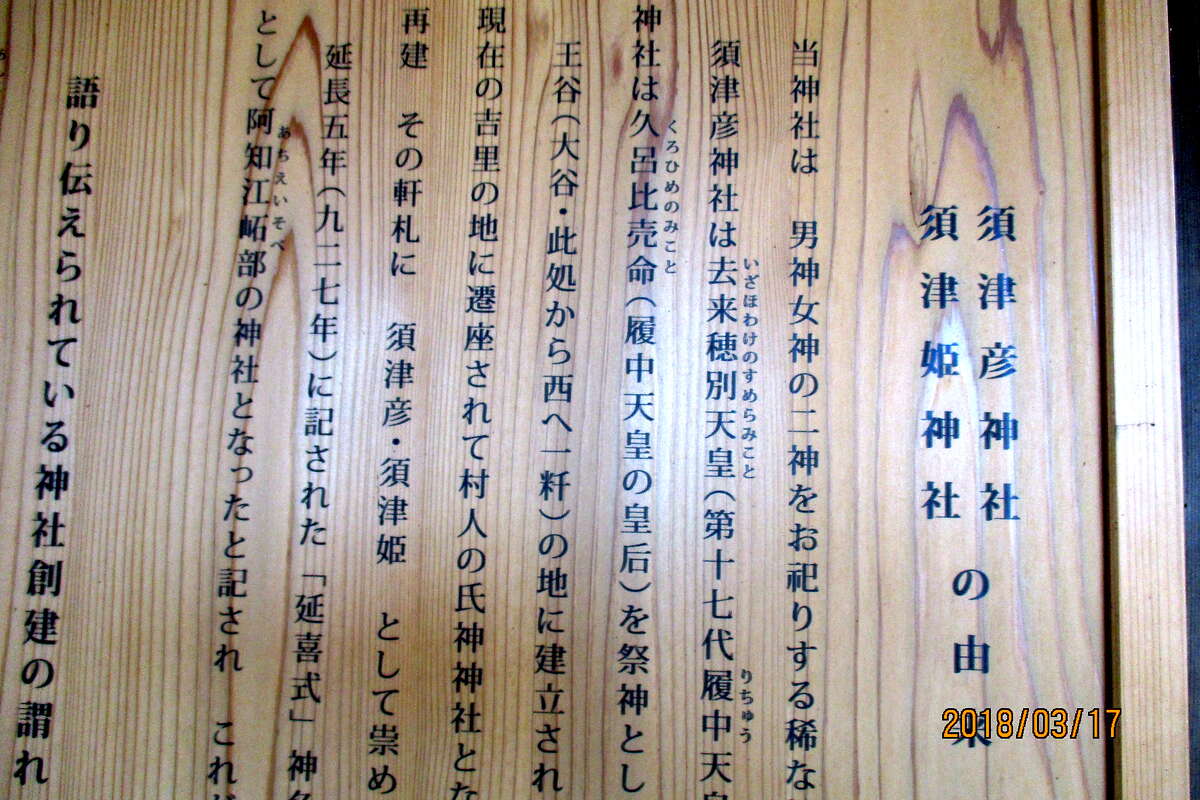 須津彦神社
須津姫神社
の由来
当神社は　男神女神の二神をお祀りする稀な
須津彦神社は去来穂別天皇（第十七代履中天皇
いざほわけのすめらみこと
りちゅう
神社は久呂比売命（履中天皇の皇后）を祭神とし
くろひめのみこと
王谷（大谷・此処から西へ一粁）の地に建立され
現在の吉里の地に遷座されて村人の氏神神社とな
再建　その軒札に　須津彦・須津姫　として崇め
延長五年（九二七年）に記された「延喜式」神名
として阿知江𡶌部の神社となったと記され　これ
あちえいそべ
語り伝えられている神社創建の謂れ
2018/03/17